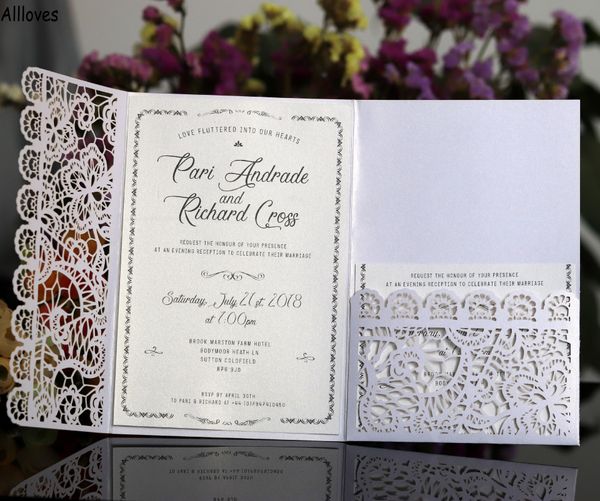 Allloves
LOVE FLUTTERED INTO OUR HEARTS
Pari Andrade
and
Richard Cross
REQUEST THE HONOUR OF YOUR PRESENCE
AT AN EVENING RECEPTION TO CELEBRATE THEIR MARRIAGE
Saturday, July 21st, 2018
at 7.00pm
BROOK MARSTON FARM HOTEL
BODYMOOR HEATH LN
SUTTON COLDFIELD
RSVP BY APRIL 30TH
TO PARI & RICHARD AT
REQUEST THE HONOUR OF YOUR PRESENCE
AT AN EVENING RECEPTION TO CELEBRATE THEIR MARRIAGE